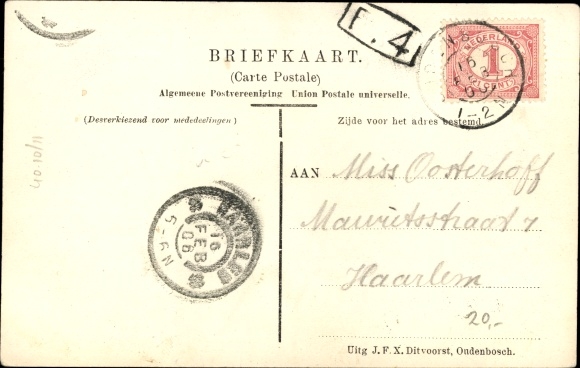 F. 4
NEDERLAND
1
CENT
1-2N
BRIEFKAART.
(Carte Postale)
Algemeene Postvereeniging Union Postale universelle.
(Desverkiezend voor mededeelingen)
Zijde voor het adres bestemd.
AAN Miss Oosterhoff
Mauritsstraat 7
Haarlem
20,-
HAARLEM
16
FEB
06
5-6N
Uitg J. F. X. Ditvoorst, Oudenbosch.